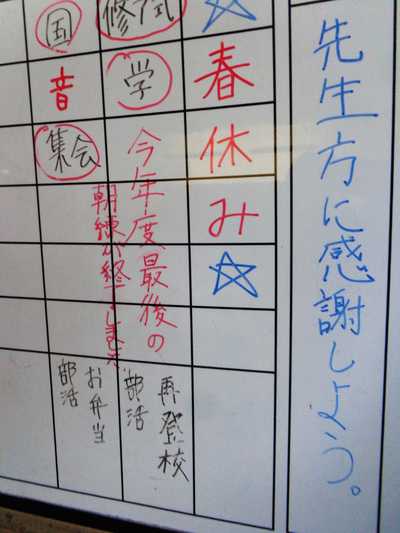 先生方に感謝しよう。
☆春休み☆
修了式
学
今年度最後の
朝練が終了しました
再登校
部活
国
音
集会
お弁当
部活